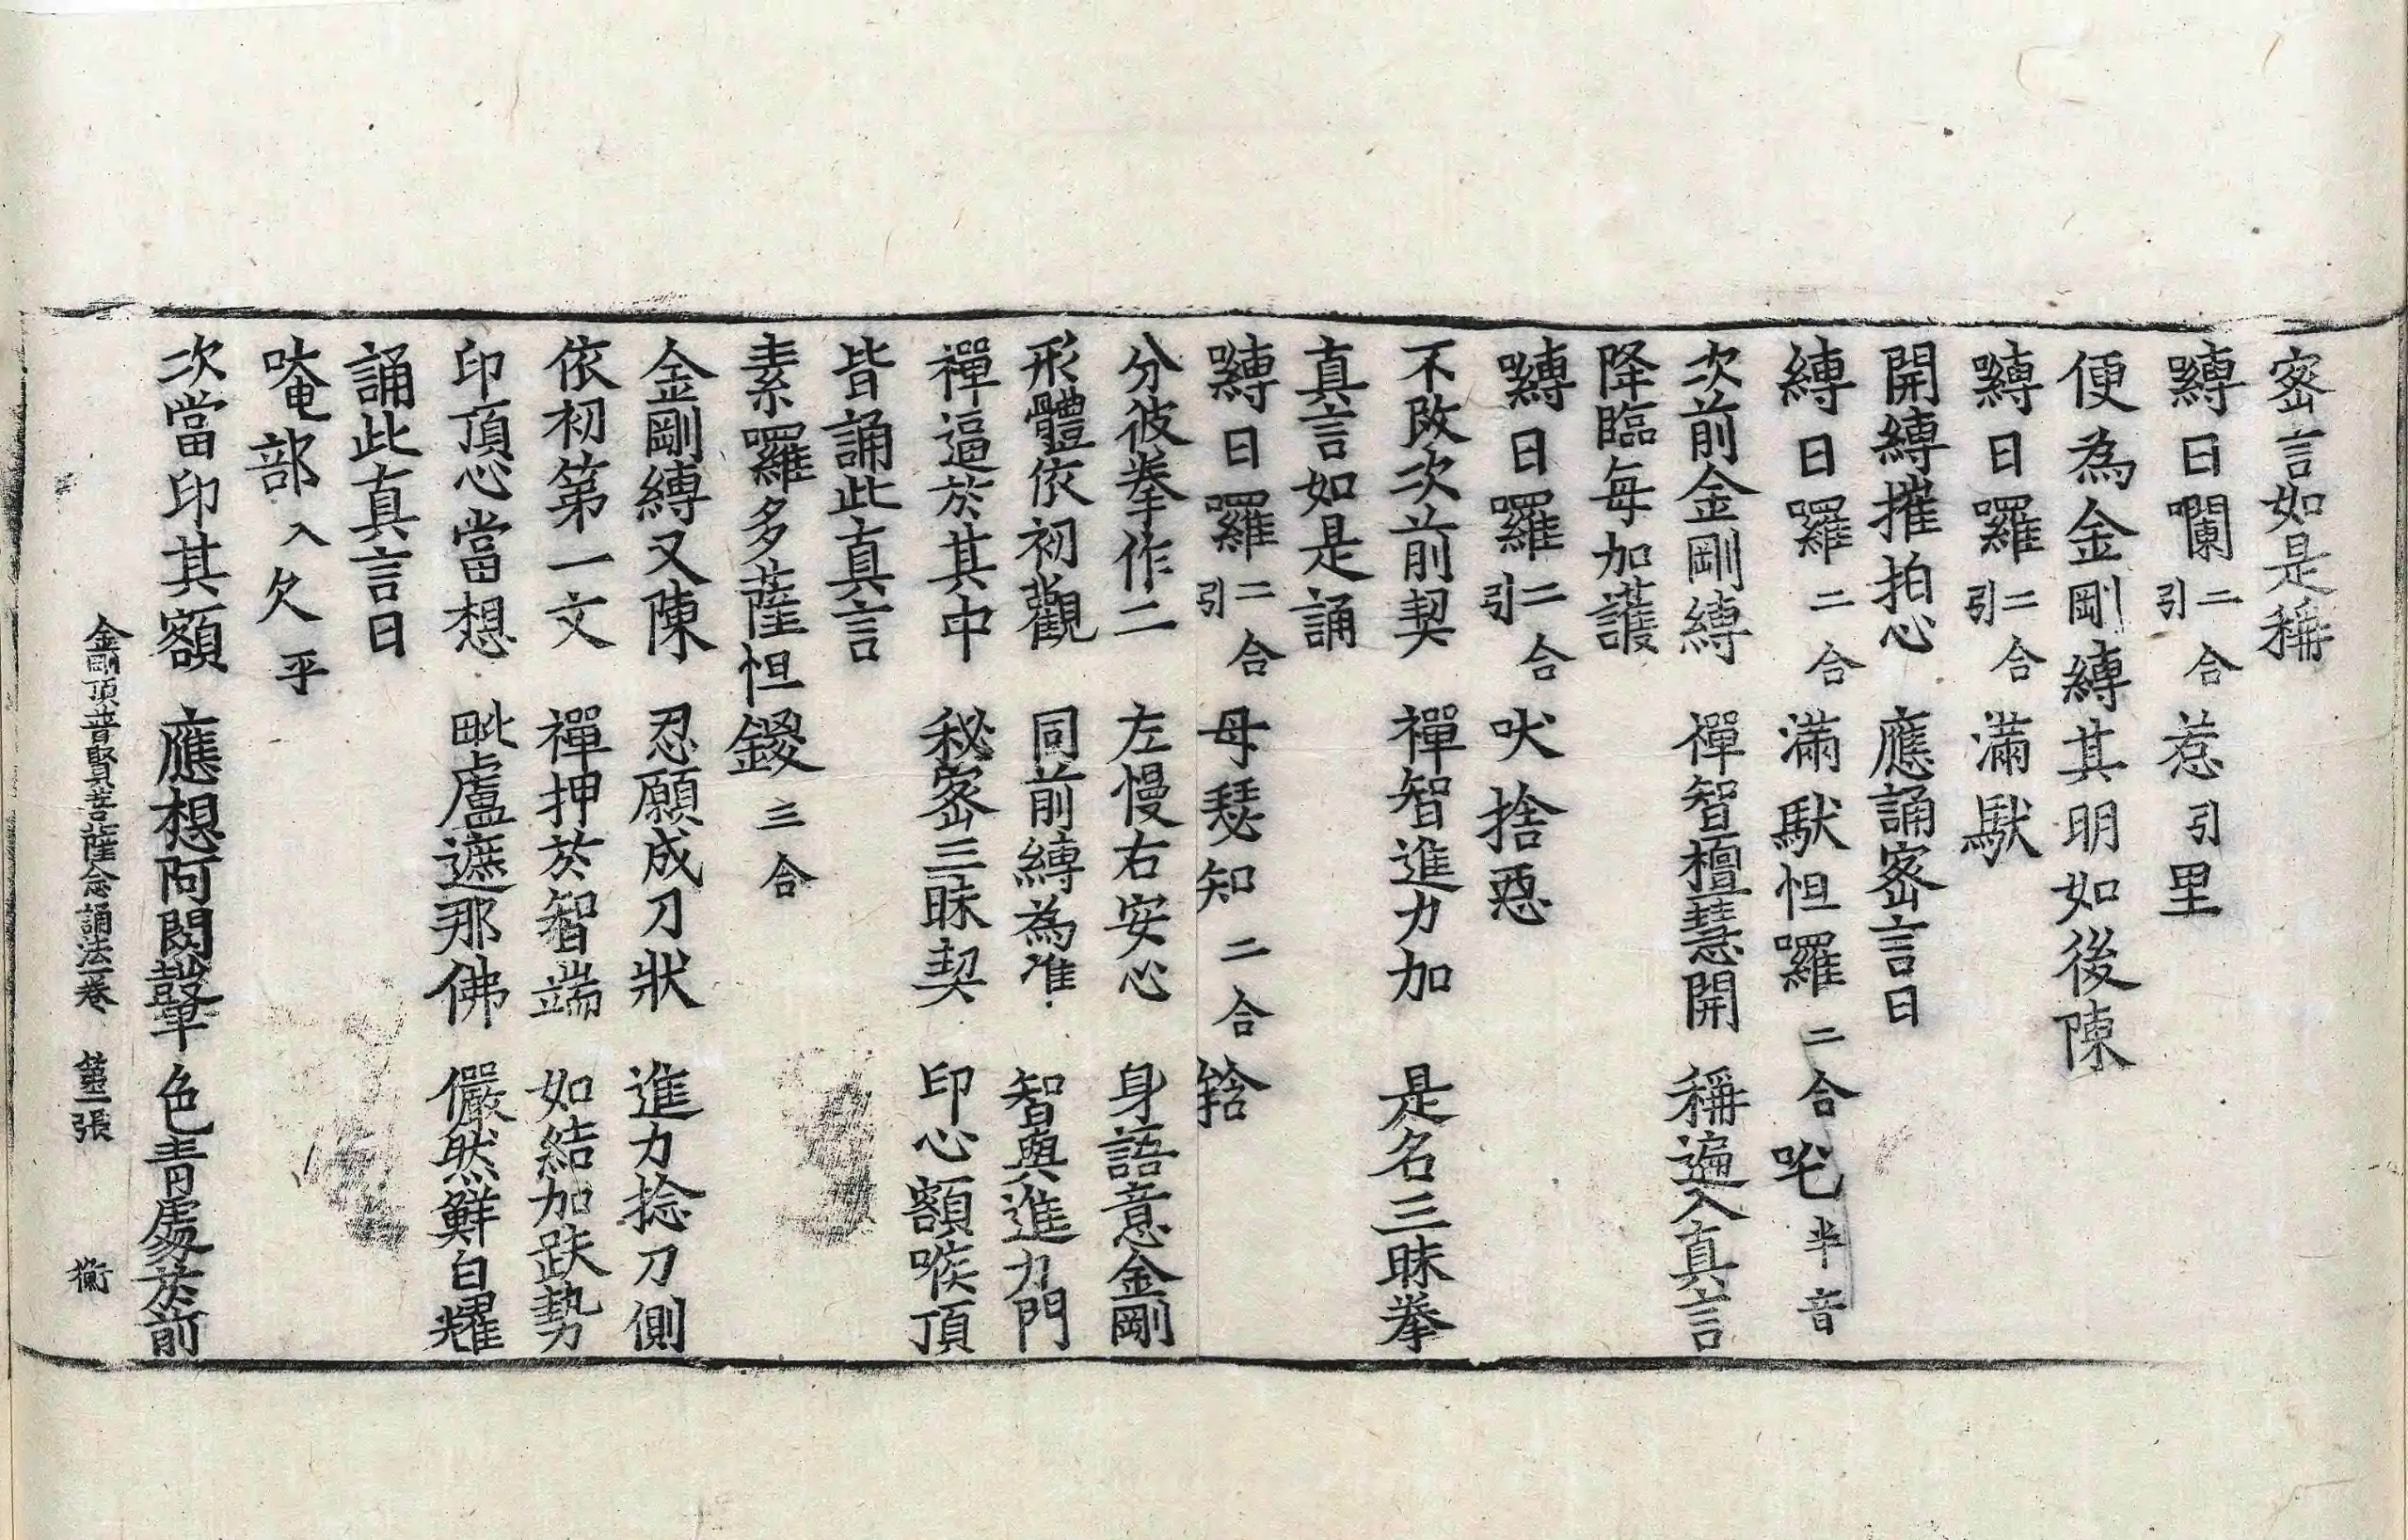 密言如是稱
嚩日囕二合引惹引里
便為金剛縛其明如後陳
嚩日囉二合引滿馱
開縛摧拍心應誦密言曰
縛日囉二合滿馱怛囉二合吒半音
次前金剛縛禪智檀慧開稱遍入真言
降臨每加護
嚩日囉二合引吠捨惡
不改次前契禪智進力加是名三昧拳
真言如是誦
嚩日囉二合引母瑟知二合鍐
分彼拳作二左慢右安心身語意金剛
形體依初觀同前縛為准智與進力門
禪逼於其中秘密三昧契印心額喉頂
皆誦此真言
素囉多薩怛鑁三合
金剛縛又陳忍願成刀狀進力捻刀側
依初第一文禪押於智端如結加趺勢
印頂心當想毗盧遮那佛儼然鮮白耀
誦此真言曰
唵部入欠平
次當印其額應想阿閦鞞色青處於前
金剛頂普賢菩薩念誦法一卷 第二張 衡